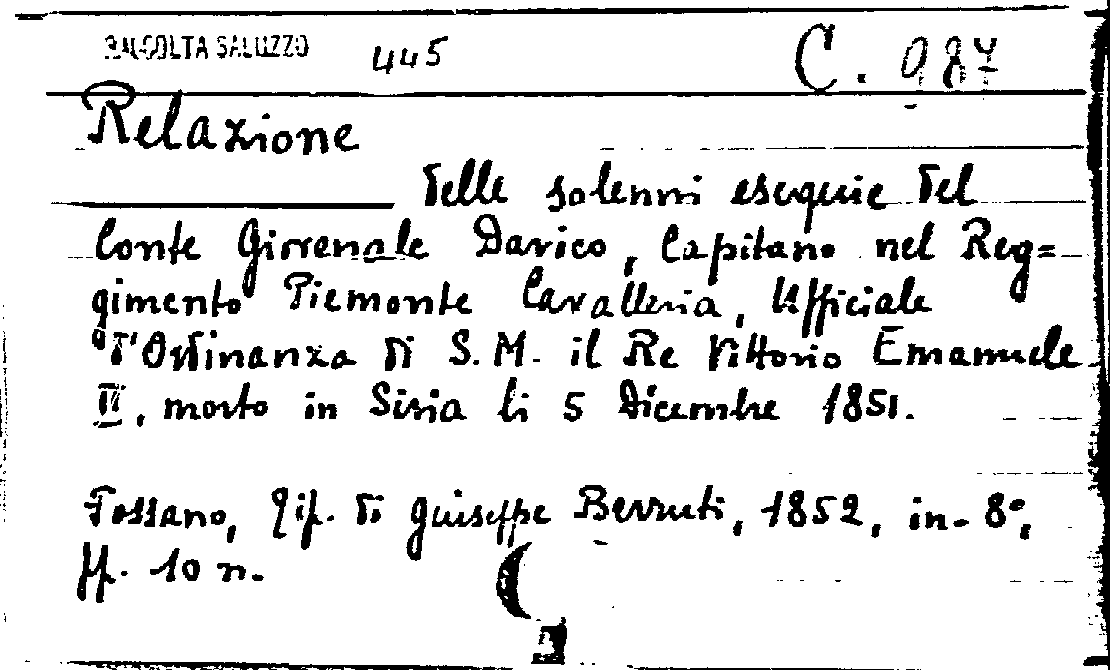 RACCOLTA SALUZZO 445 C. 987
Relazione
delle solenni esequie del
Conte Giovenale Davico, Capitano nel Reg=
gimento Piemonte Cavalleria, Ufficiale
d'Ordinanza di S. M. il Re Vittorio Emanuele
II, morto in Siria li 5 Dicembre 1851.
Fossano, Tip. di Giuseppe Berruti, 1852, in-8°,
ff. 10 n.